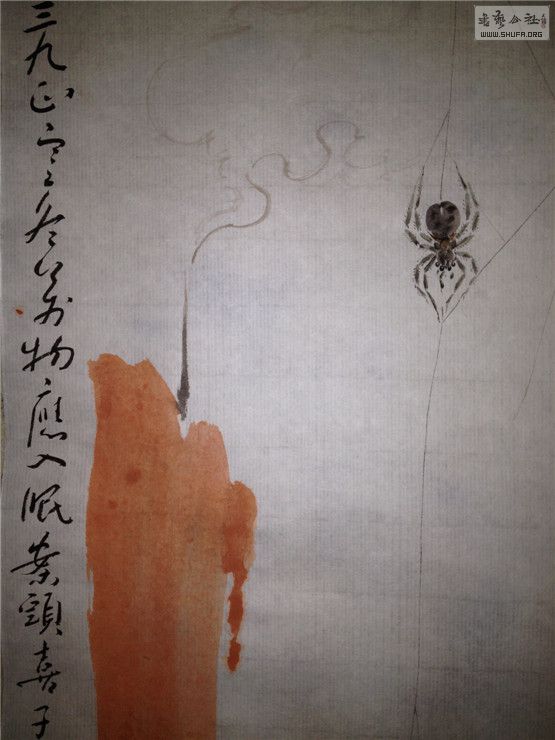 三九正寒冬万物應入眠案頭喜子
书艺公社
WWW.SHUFA.ORG